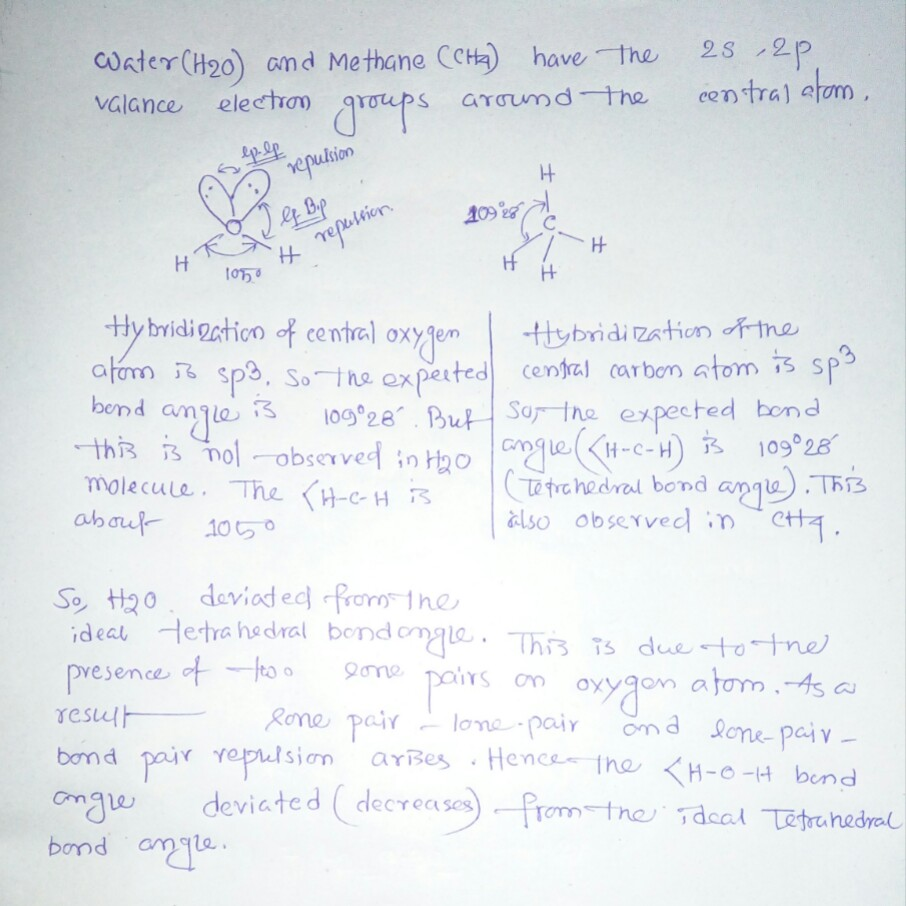 Water (H2O) and Methane (CH4) have the 2s, 2p
valance electron groups around the central atom.
lp-lp
repulsion
lp-B.p
repulsion
H
H
105°
H
109°28′
C
H
H
H
Hybridization of central oxygen
atom is sp3. So the expected
bond angle is 109°28′. But
this is not observed in H2O
molecule. The <H-C-H is
about 105°
Hybridization of the
central carbon atom is sp3
So, the expected bond
angle (<H-C-H) is 109°28′
(Tetrahedral bond angle). This
also observed in CH4.
So, H2O deviated from the
ideal tetrahedral bond angle. This is due to the
presence of two lone pairs on oxygen atom. As a
result lone pair - lone-pair and lone-pair-
bond pair repulsion arises. Hence the <H-O-H bond
angle deviated (decreases) from the ideal Tetrahedral
bond angle.